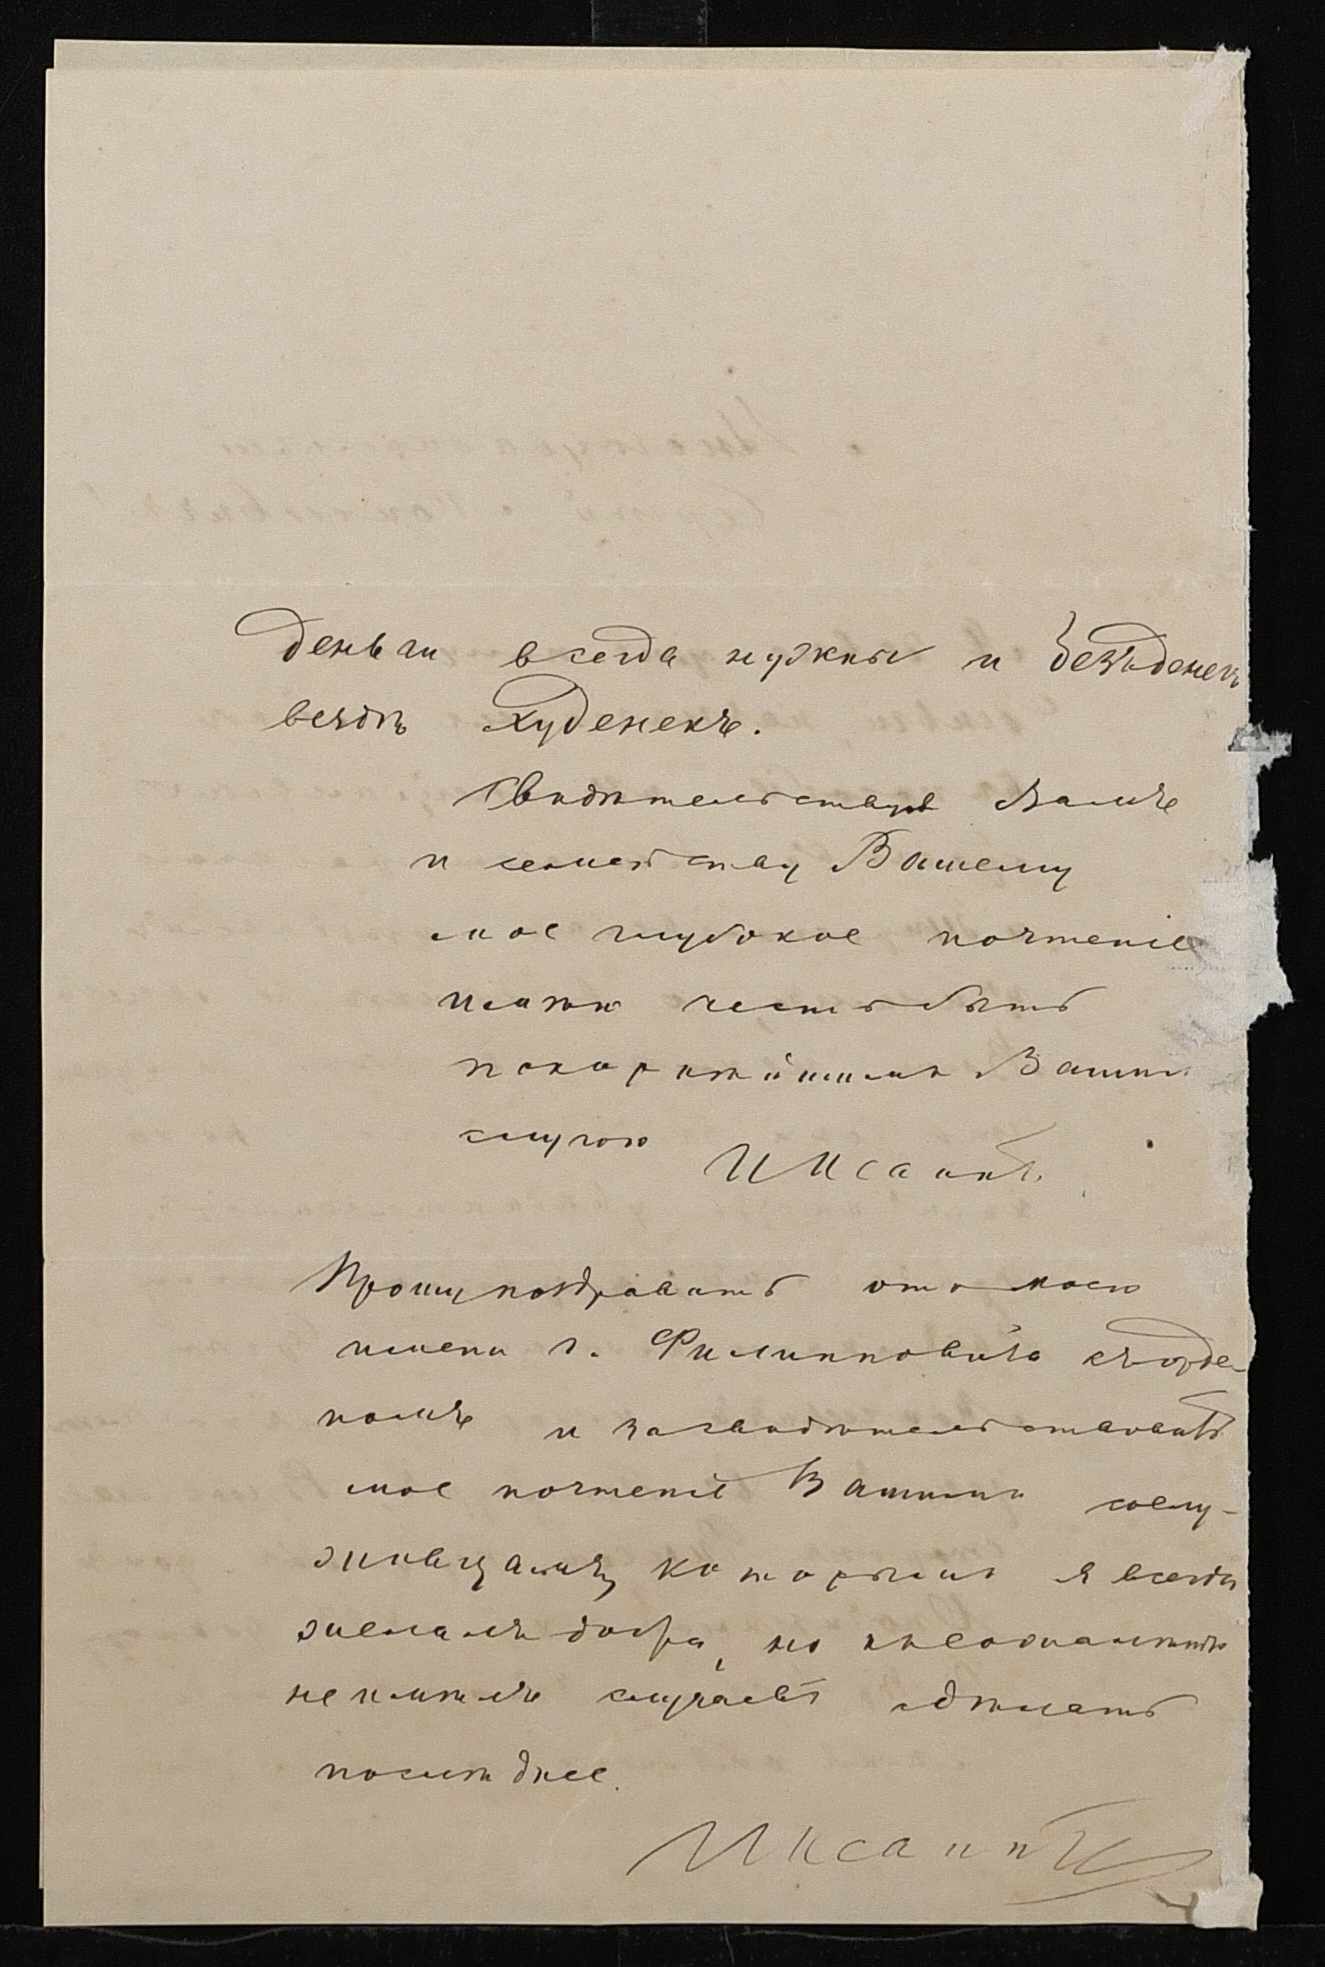 деньги всегда нужны и безъденегъ
вездѣ худенекъ.
Свидѣтельствуя Вамъ
и семейству Вашему
мое глубокое почтеніе
имѣю честь быть
покорнѣйшимъ Вашимъ
слугою
И Исаинъ.
Прошу поздравить отъ моего
имени г. Филипповича съ орде-
номъ и засвидѣтельствовать
мое почтеніе Вашимъ сослу-
живцамъ, которымъ я всегда
желалъ добра, но къ сожалѣнію
не имѣлъ случаевъ сдѣлать
послѣднее.
И Исаинъ